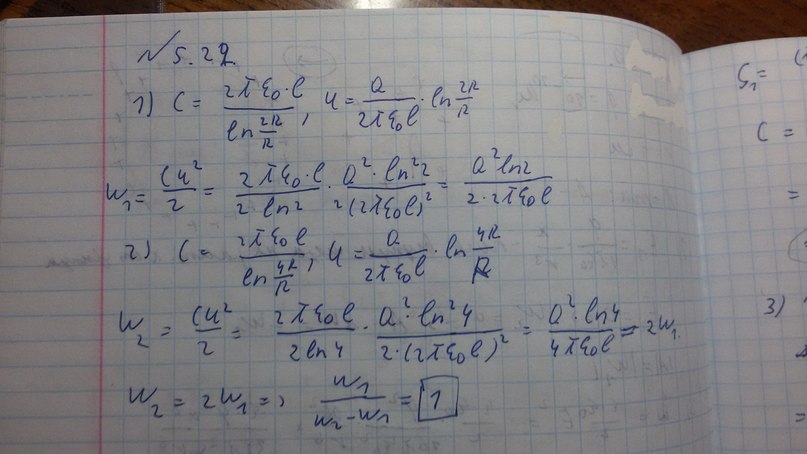 N 5.22
1) C = 2πε₀·l / ln 2R/R , U = Q / 2πε₀l · ln 2R/R
W₁ = CU² / 2 = 2πε₀·l / 2·ln2 · Q²·ln²2 / 2(2πε₀l)² = Q² ln2 / 2·2πε₀l
2) C = 2πε₀l / ln 4R/R , U = Q / 2πε₀l · ln 4R/R
W₂ = CU² / 2 = 2πε₀l / 2ln4 · Q²·ln²4 / 2·(2πε₀l)² = Q²·ln4 / 4πε₀l = 2W₁.
W₂ = 2W₁ => W₁ / W₂-W₁ = 1
C =
3)
=